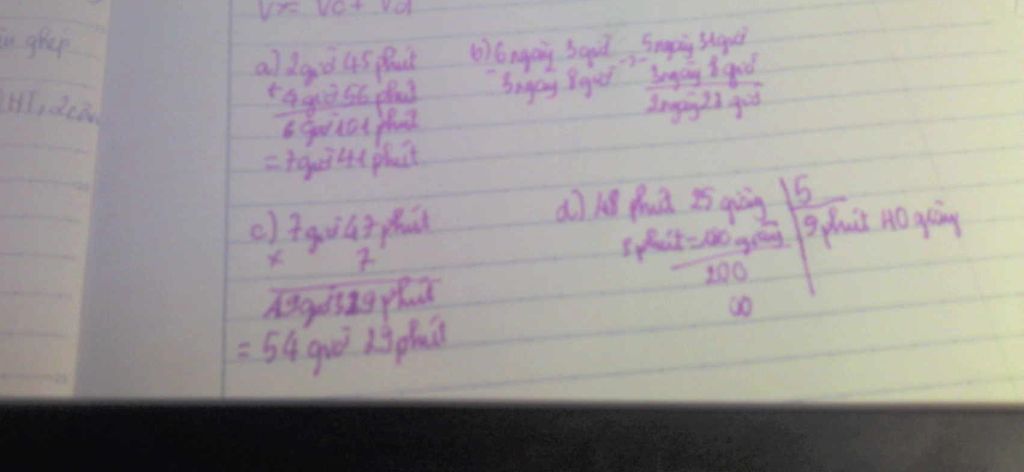 Vx= Vo+ Vd
ghép
a) 2 giờ 45 phút
+ 4 giờ 56 phút
6 giờ 101 phút
= 7 giờ 41 phút
b) 6 ngày 3 giờ
- 3 ngày 8 giờ
5 ngày 31 giờ
3 ngày 8 giờ
2 ngày 23 giờ
c) 7 giờ 47 phút
x 7
49 giờ 329 phút
= 54 giờ 29 phút
d) 48 phút 25 giây 5
3 phút = 180 giây 9 phút 40 giây
200
00